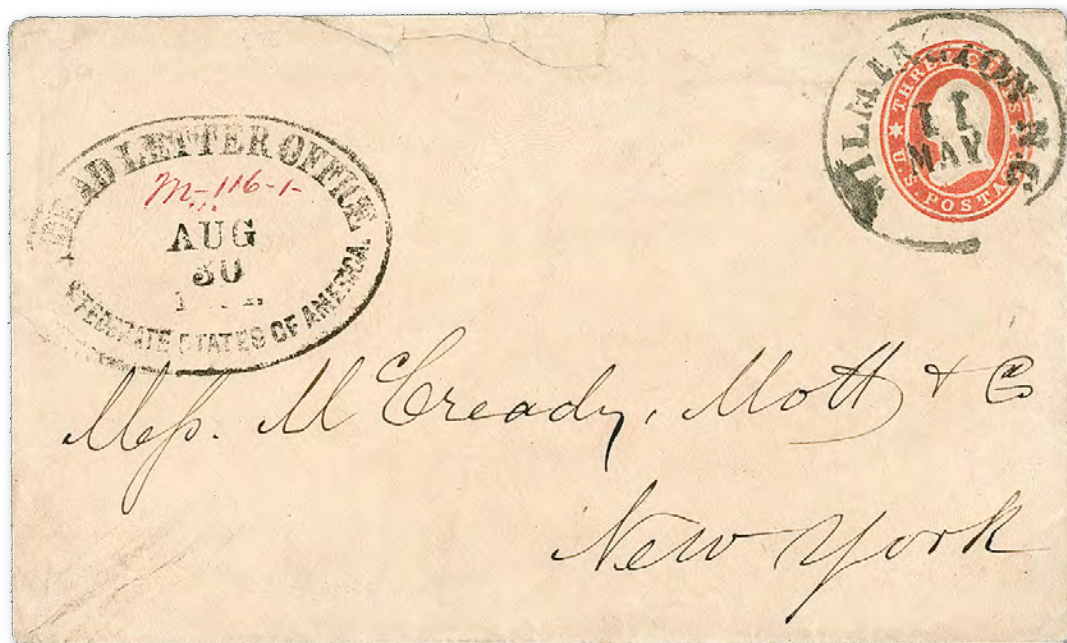 DEAD LETTER OFFICE
M-116-1-
AUG
30
CONFEDERATE STATES OF AMERICA.
WILMINGTON N.C.
11
MAY
THREE CENTS
U.S. POSTAGE
Mess. McCready, Mott & Co
New York